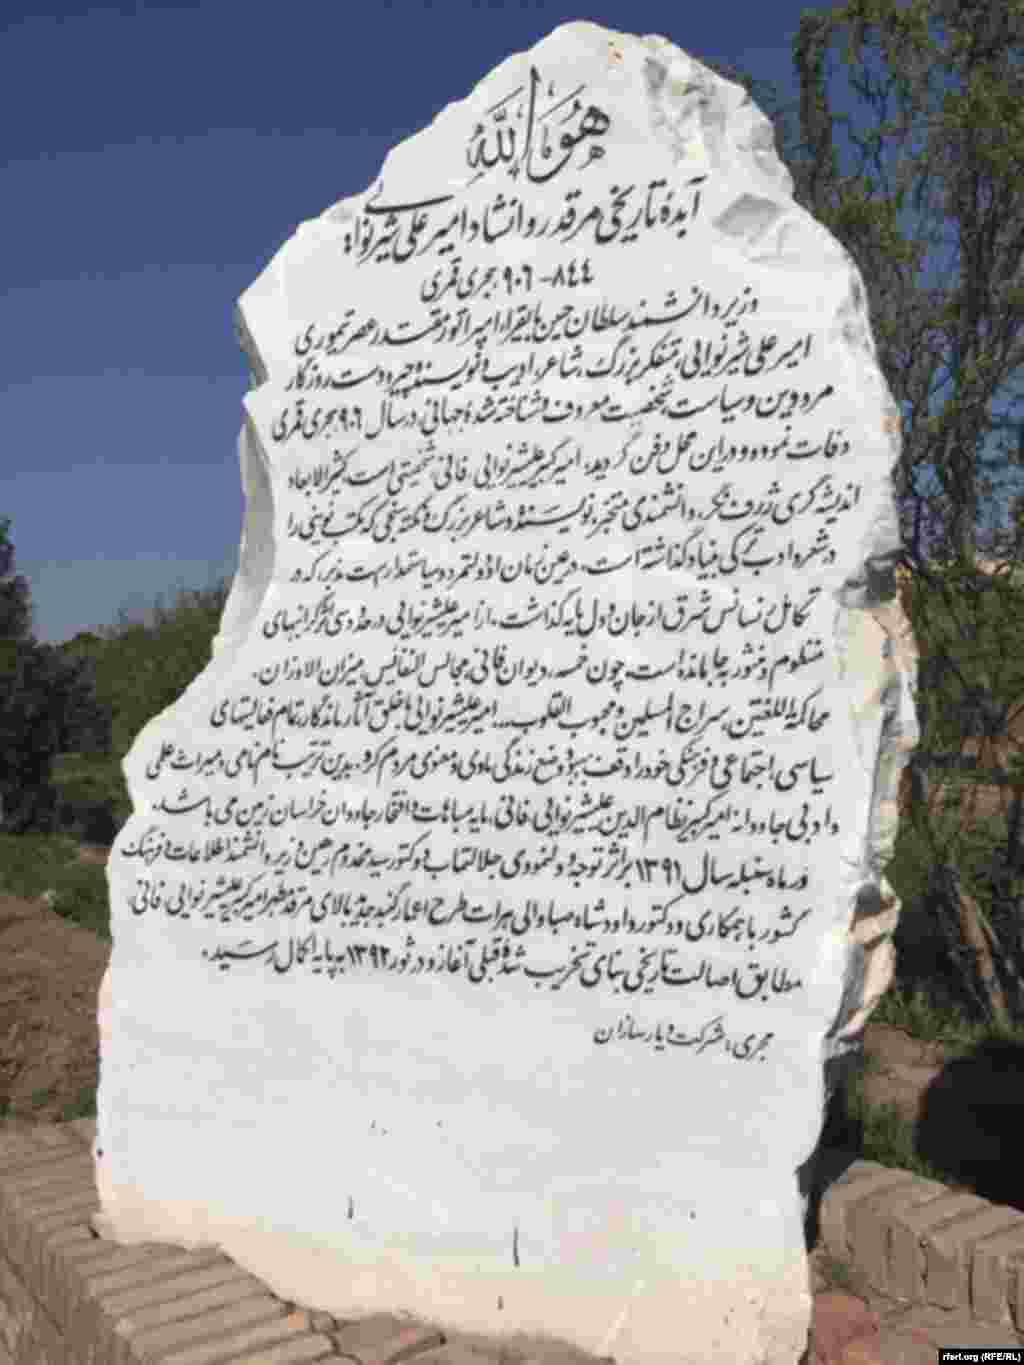 هُوَ اللّٰهُ
آبدهٔ تاریخی مرقد روانشاد امیر علی شیر نوایی
۸۴۴ - ۹۰۶ هجری قمری
وزیر دانشمند سلطان حسین بایقراء، امپراتور مقتدر عصر تیموری
امیر علی شیر نوایی، متفکر بزرگ، شاعر، ادیب و نویسنده چیره دست روزگار
مرد دین و سیاست، شخصیت معروف و شناخته شدهٔ جهانی، در سال ۹۰۶ هجری قمری
وفات نموده و در این محل دفن گردید، امیر کبیر علیشیر نوایی، فانی شخصیتی است کثیرالابعاد
اندیشه گری ژرف نگر، دانشمندی متبحر، نویسنده و شاعر بزرگ و نکته سنجی که مکتب نوینی را
در شعر و ادب ترکی بنیاد گذاشته است، در عین زمان او دولتمرد و سیاستمداریست مدبر، که در
تکامل رنسانس شرق از جان و دل مایه گذاشت، از امیر علیشیر نوایی در حدود سی اثر گرانبهای
منظوم و منثور به جا مانده است، چون خمسه، دیوان فانی، مجالس النفایس، میزان الاوزان،
محاکمة اللغتین، سراج المسلمین و محبوب القلوب... امیر علیشیر نوایی با خلق آثار ماندگار، تمام فعالیتهای
سیاسی، اجتماعی و فرهنگی خود را وقف بهبود وضع زندگی مادی و معنوی مردم کرد، بدین ترتیب نام نامی و میراث علمی
و ادبی جاودانه امیر کبیر نظام الدین علیشیر نوایی، فانی، مایه مباهات و افتخار جاودان خراسان زمین می باشد.
در ماه سنبله سال ۱۳۹۱ بر اثر توجه و رهنمودی جلالتمآب دوکتور سید مخدوم رهین وزیر دانشمند اطلاعات و فرهنگ
کشور با همکاری دوکتور داود شاه صبا والی هرات طرح اعمار گنبد جدید بالای مرقد مطهر امیر کبیر علیشیر نوایی، فانی،
مطابق اصالت تاریخی بنای تخریب شدهٔ قبلی آغاز و در ثور ۱۳۹۲ به پایه اکمال رسید.
مجری: شرکت دیار سازان
rferl.org (RFE/RL)